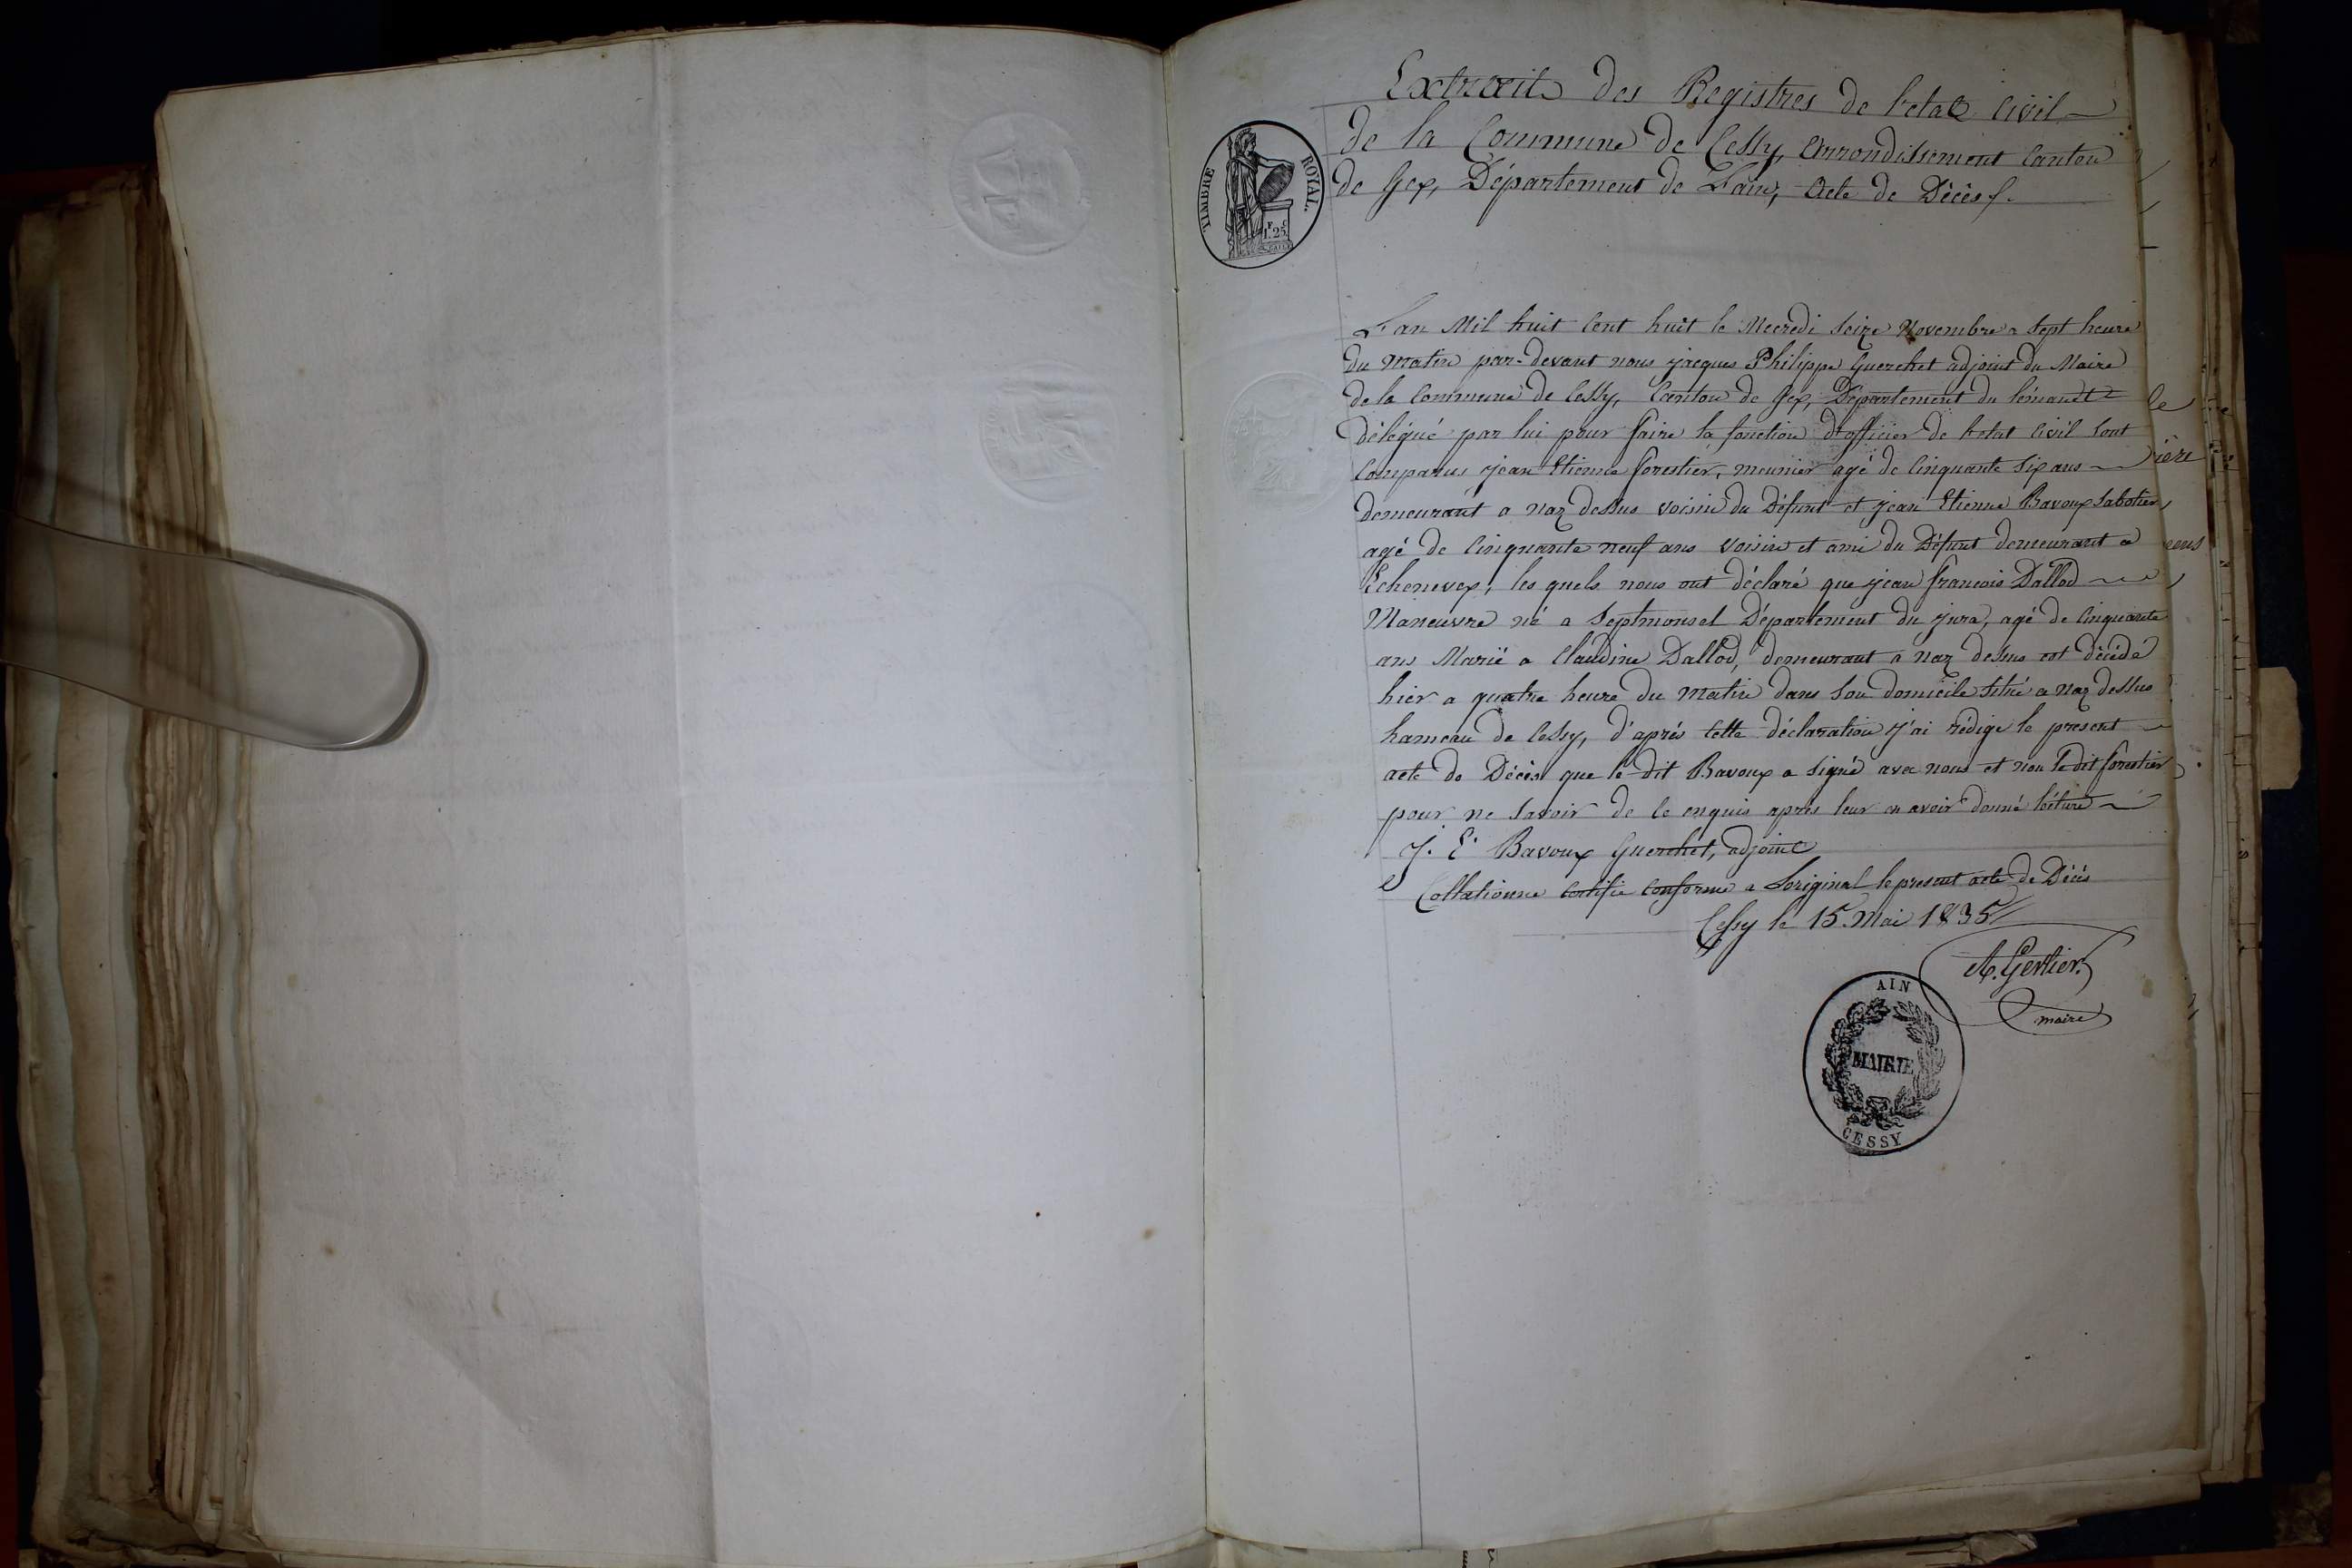 Extrait des Registres de l'etat Civil
de la Commune de Cessy, Arrondissement Canton
de Gex, Département de L'ain, Acte de Décès.
TIMBRE ROYAL.
1F.25C
L'an Mil huit Cent huit le Mecredi Seize Novembre a Sept heure
du Matin par-devant nous jacques Philippe Guerchet adjoint du Maire
de la Commune de Cessy, Canton de Gex, Département du léman et
délégué par lui pour faire la fonction d'officier de l'etat Civil Sont
Comparus jean Etienne forestier, meunier agé de Cinquante Six ans
demeurant a naz dessus voisin du Défunt et jean Etienne Bavoux Sabotier,
agé de Cinquante neuf ans voisin et ami du Défunt demeurant a
Echenevex, les quels nous ont déclaré que jean francois Dallod
Maneuvre né a Septmonsel Département du jura, agé de Cinquante
ans Marié a Claudine Dallod, demeurant a naz dessus est décédé
hier a quatre heure du matin dans Son domicile Situé a naz dessus
hameau de Cessy, d'après Cette déclaration j'ai rédige le present
acte de Décès que le dit Bavoux a Signé avec nous et non le dit forestier
pour ne Savoir de ce enquis après leur en avoir donné lécture
J. E. Bavoux Guerchet, adjoint
Collationne Certifie Conforme a Loriginal le present acte de Décès
Cessy le 15 Mai 1835
A. Gertier.
maire
AIN
MAIRIE
CESSY
le
ière